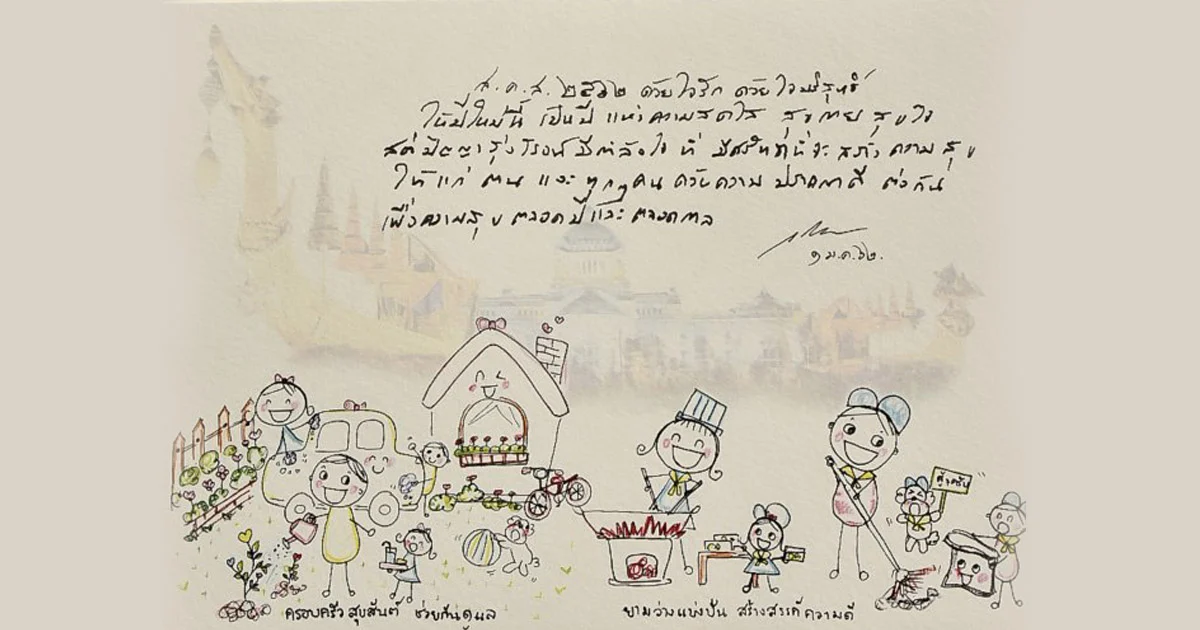 ส.ค.ส. ๒๕๖๒ ด้วยใจรัก ด้วยใจบริสุทธิ์
ให้ปีใหม่นี้ เป็นปี แห่งความสดใส สุขกาย สุขใจ
สติปัญญารุ่งโรจน์ มีกำลังใจ ที่ มีศรัทธาที่จะสร้าง ความสุข
ให้แก่ ตน และ ทุกๆคน ด้วยความ ปรารถนาดี ต่อกัน
เพื่อความสุข ตลอดปีและ ตลอดกาล
๑ ม.ค. ๖๒.
ครอบครัวสุขสันต์ ช่วยกันดูแล
ยามว่างแบ่งปัน สร้างสรรค์ความดี